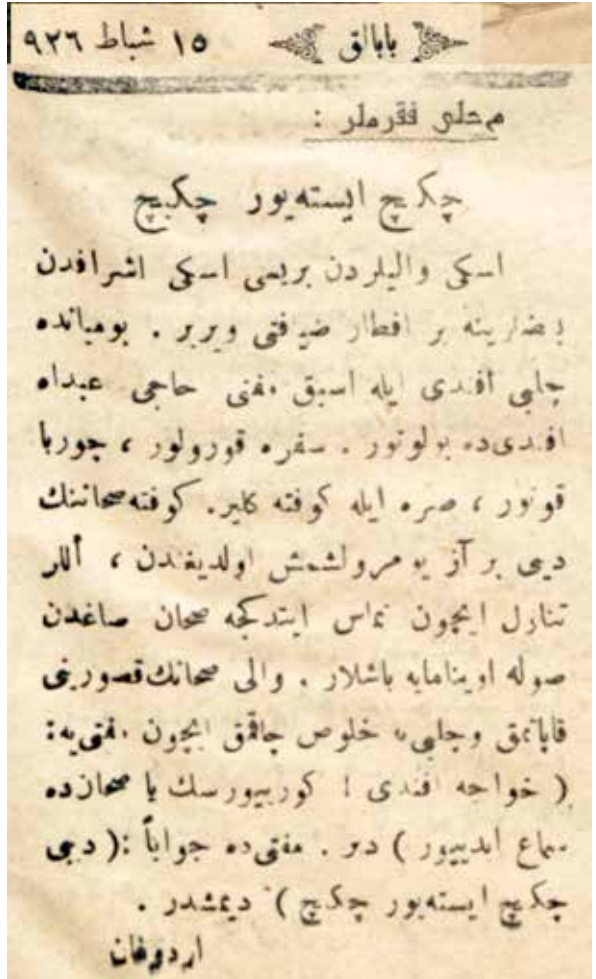 ١٥ شباط ٩٢٦ بابالق
محلی فقره‌لر :
چکیچ ایسته‌یور چکیچ
اسکی والیلردن بریسی اسکی اشرافدن
بعضلرینه بر افطار ضیافتی ویریر . بومیانده
چلبی افندی ایله اسبق مفتی حاجی عبداه
افندی‌ده بولونور . سفره قورولور ، چوربا
قونور ، صره ایله کوفته کلیر . کوفته صحاننك
دیبی بر آز یومرولشمش اولدیغندن ، أللر
تناول ایچون تماس ایتدکجه صحان صاغدن
صوله اوینامایه باشلار . والی صحانك قصورینی
قاپاتمق وچلبی‌یه خلوص چاقمق ایچون مفتی‌یه:
( خواجه افندی ! کوریيورسك یا صحان‌ده
سماع ایدییور ) دیر . مفتی‌ده جواباً :( دیبی
چکیچ ایسته‌یور چکیچ ) دیمشدر .
اردوغان